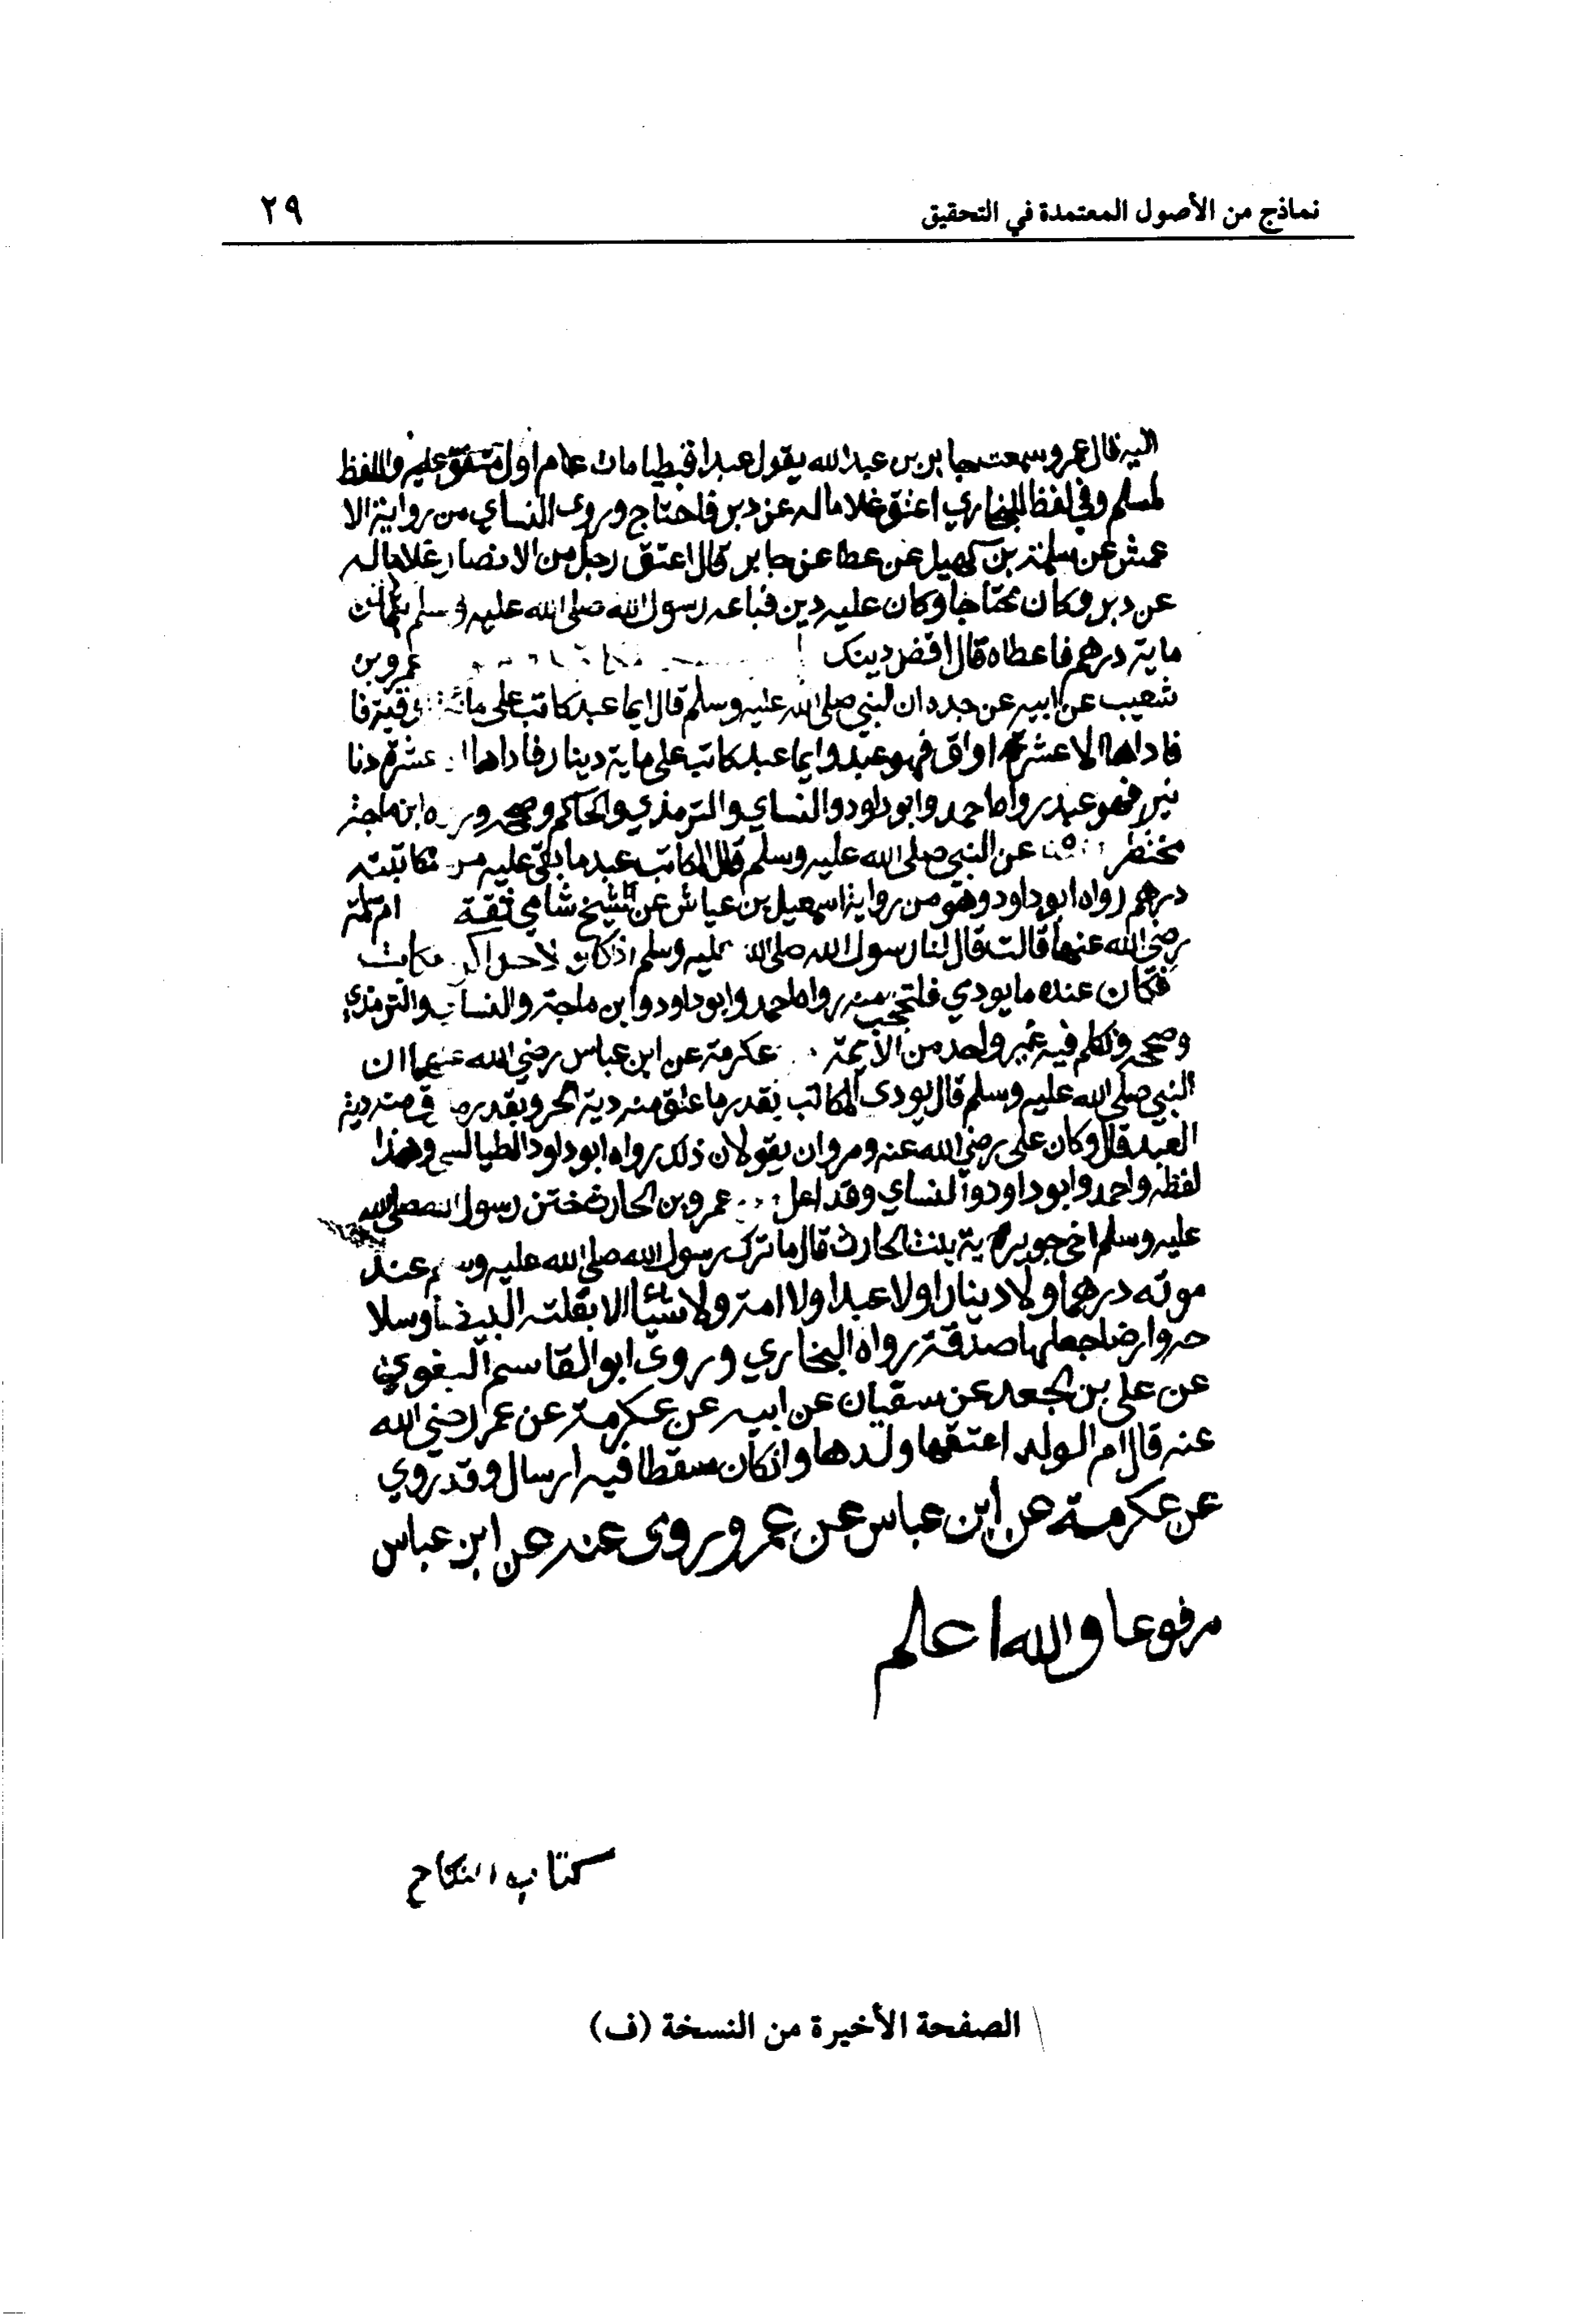 نماذج من الأصول المعتمدة في التحقيق
٢٩
اليه قال عمرو سمعت جابر بن عبد الله يقول عبدا قبطيا مات عام اول متفق عليه واللفظ
لمسلم وفي لفظ للبخاري اعتق غلاما له عن دبر فاحتاج وروى النساي من رواية الا
عمش عن سلمة بن كهيل عن عطا عن جابر قال اعتق رجل من الانصار غلاما له
عن دبر وكان محتاجا وكان عليه دين فباعه رسول الله صلى الله عليه وسلم بثمان
ماية درهم فاعطاه قال اقض دينك عمرو بن
شعيب عن ابيه عن جده ان النبي صلى الله عليه وسلم قال ايما عبد كاتب على مائة فا
فاداها الا عشرة اواق فهو عبد وايما عبد كاتب على ماية دينار فاداها عشرة دنا
نير فهو عبد رواه احمد وابو داود والنساي والترمذي والحاكم وصححه ابن ماجة
مختصر عن النبي صلى الله عليه وسلم قال المكاتب عبد ما بقي عليه من مكاتبته
درهم رواه ابو داود وهو من رواية اسمعيل بن عياش عن شيخ شامي ثقة ام سلمة
رضي الله عنها قالت قال لنا رسول الله صلى الله عليه وسلم اذا كان لاحداكن مكاتب
فكان عنده ما يودي فلتحتجب منه رواه احمد وابو داود وابن ماجة والنساي والترمذي
وصححه وتكلم فيه غير واحد من الايمة عكرمة عن ابن عباس رضي الله عنهما ان
النبي صلى الله عليه وسلم قال يودى المكاتب بقدر ما عتق منه دية الحر وبقدر ما دية
العبد قال وكان علي رضي الله عنه ومروان يقولان ذلك رواه ابو داود الطيالسي وهذا
لفظه واحمد وابو داود والنساي وقد اعل عمرو بن الحارث ختن رسول الله صلى الله
عليه وسلم اخي جويرية بنت الحارث قال ما ترك رسول الله صلى الله عليه وسلم عند
موته درهما ولا دينارا ولا عبدا ولا امة ولا شيئا الا بغلته البيضا وسلا
حه وارضا جعلها صدقة رواه البخاري وروى ابو القاسم البغوي
عن علي بن الجعد عن سفيان عن ابيه عن عكرمة عن عمر رضي الله
عنه قال ام الولد اعتقها ولدها وان كان سقطا فيه ارسال وقد روي
عن عكرمة عن ابن عباس عن عمر وروى عنه عن ابن عباس
مرفوعا والله اعلم
كتاب النكاح
الصفحة الأخيرة من النسخة (ف)